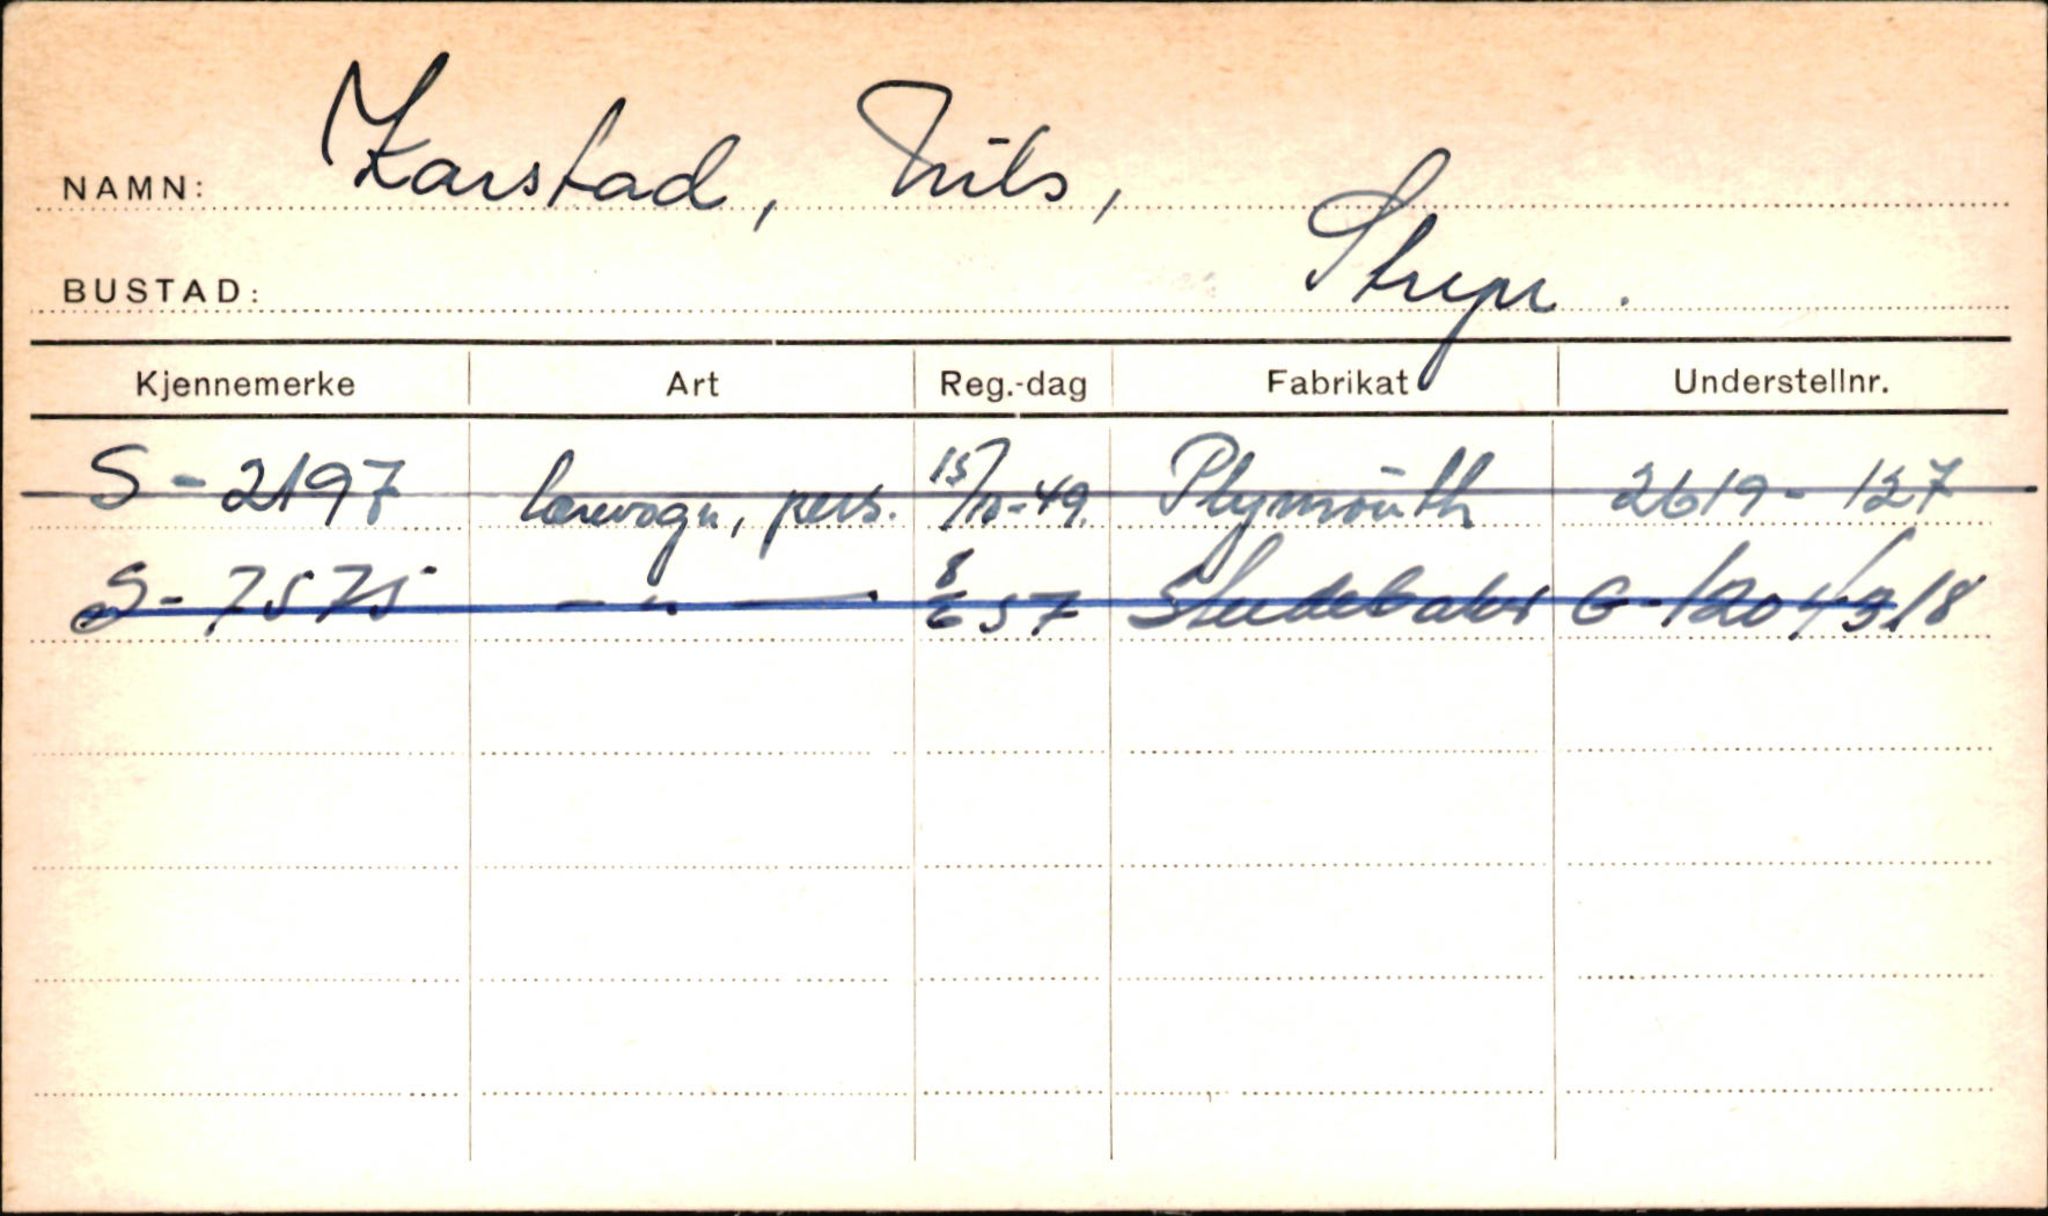 NAMN: Karstad, Nils,
BUSTAD: Stryn.
Kjennemerke Art Reg.-dag Fabrikat Understellnr.
S-2197 lærevogn, pers. 15/10-49. Plymouth 2619-127
S-7575 — " — 8/6 57 Studebaker G-1204918